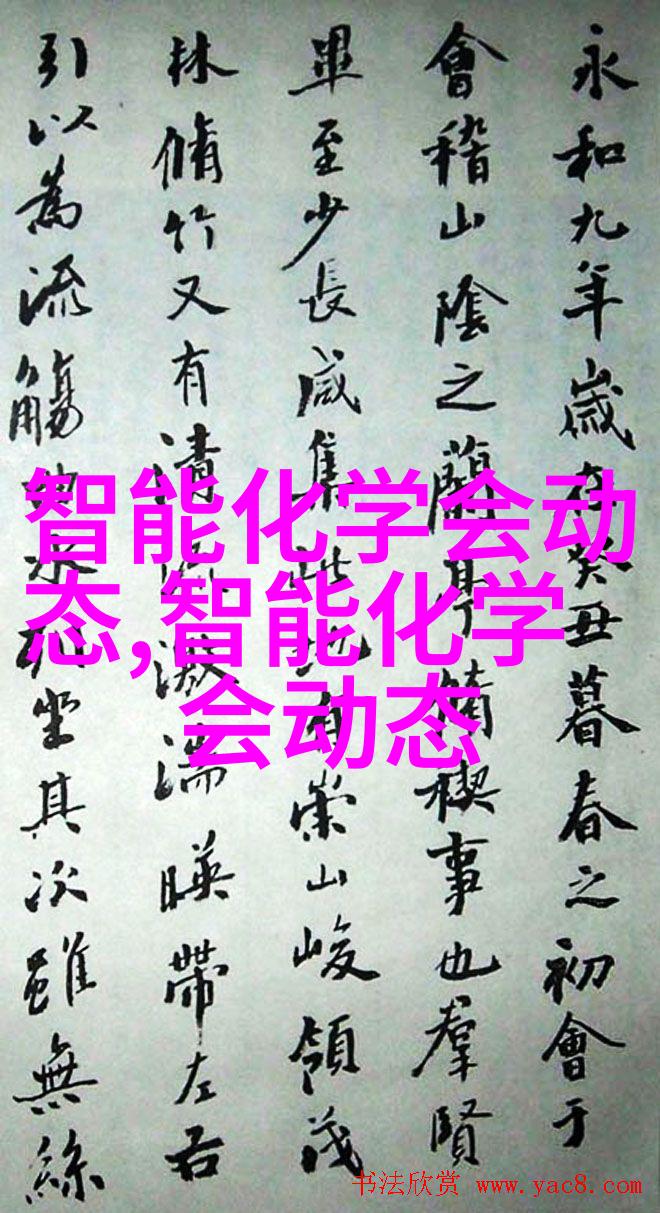 永和九年歲在癸丑暮春之初會于
會稽山陰之蘭亭脩禊事也羣賢
畢至少長咸集此地有崇山峻領茂
林脩竹又有清流激湍暎帶左右
引以為流觴曲水列坐其次雖無絲
智能化学会动
态,智能化学
会动态
书法欣赏 www.yac8.com